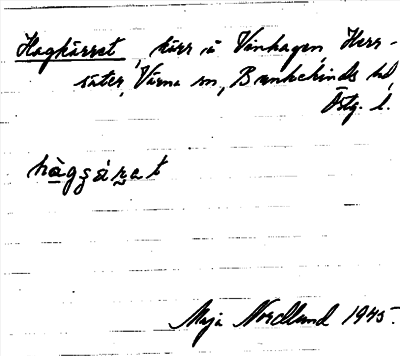 Hagkärret, kärr i Vinhagen, Herr-
säter, Värna sn, Bankekinds hd
Östg. l.
Maja Nordlund 1945.